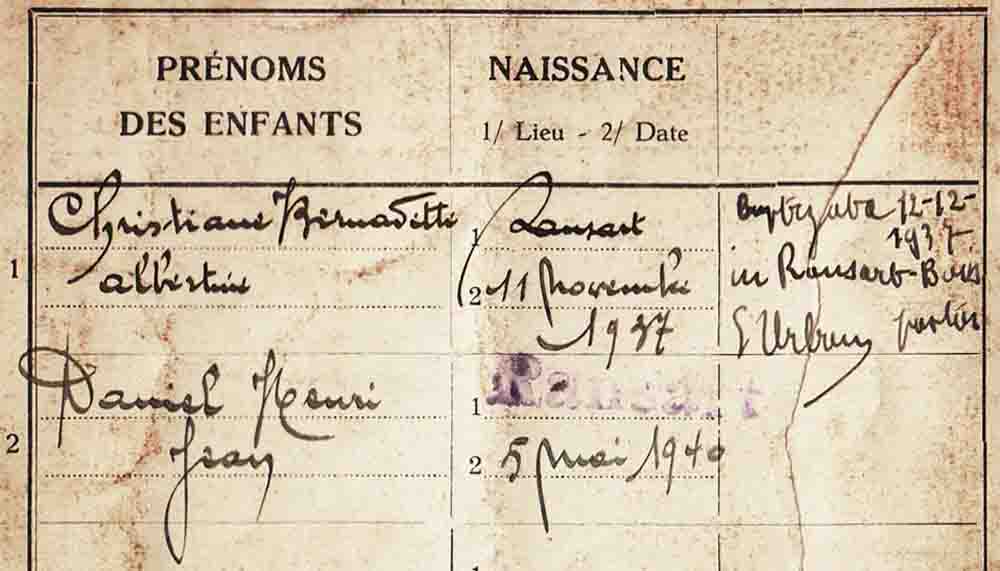 PRÉNOMS
DES ENFANTS
NAISSANCE
1/ Lieu - 2/ Date
1
Christiane Bernadette
Albertine
1 Ransart
2 11 Novembre
1937
Baptizata 12-12-
1937
in Ransart-Bois
2
Daniel Henri
Jean
1 Ransart
2 5 Mai 1940